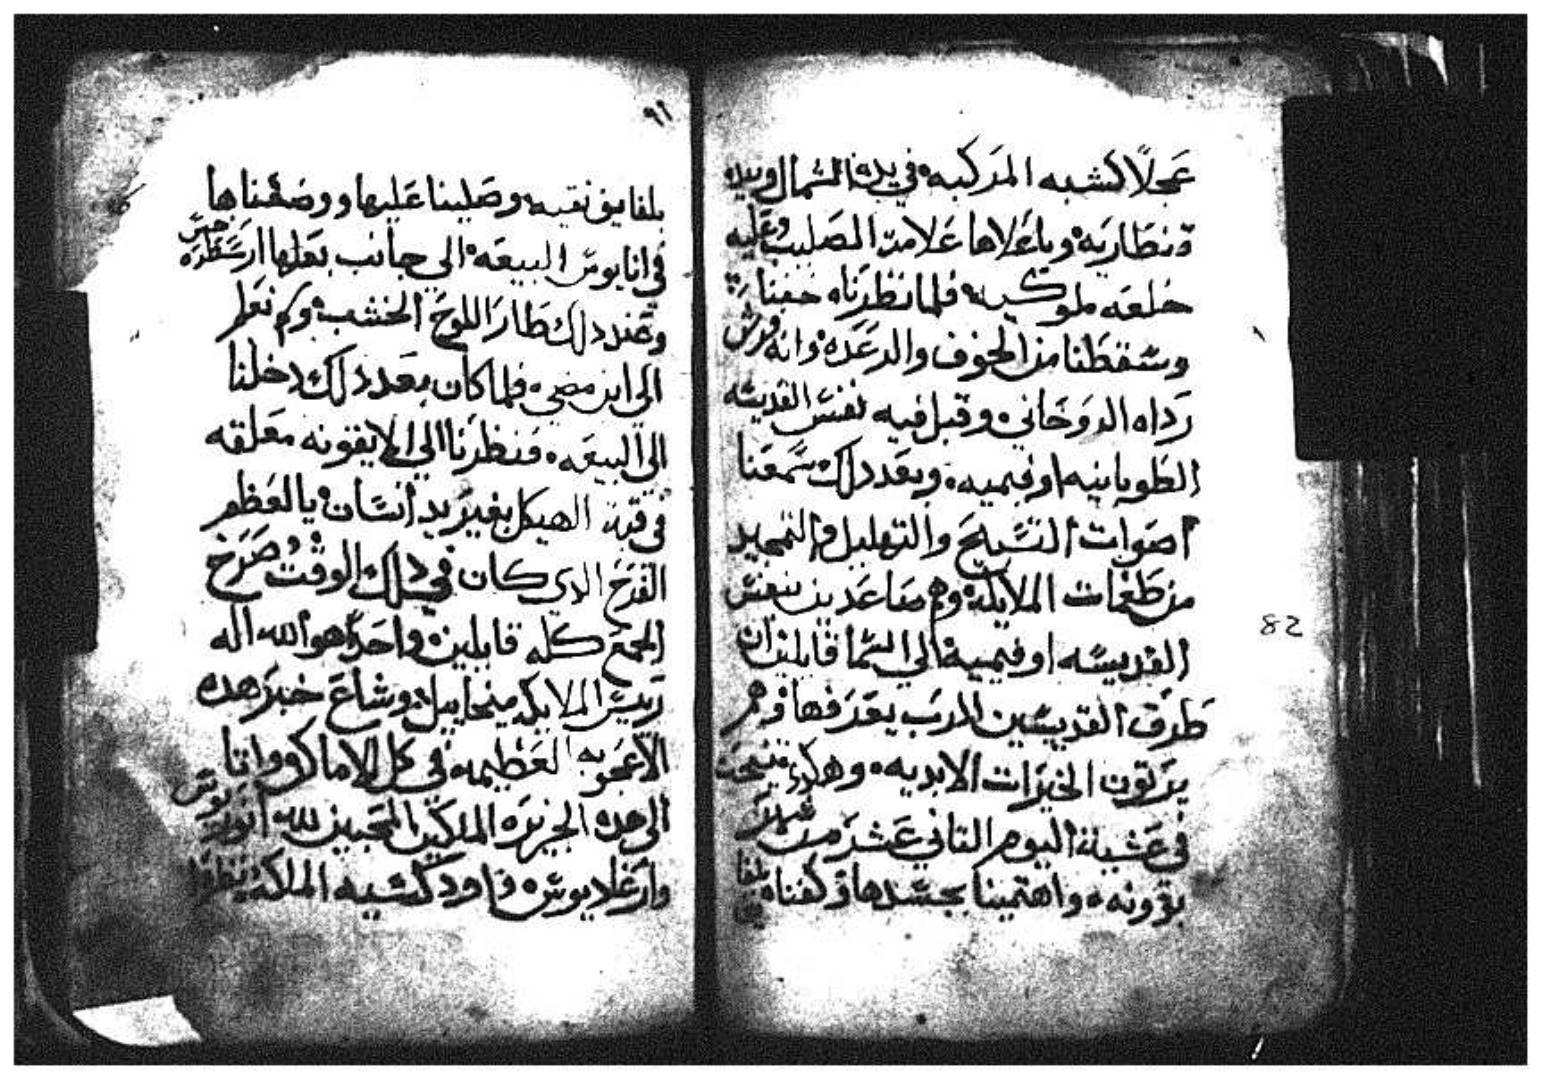 عجلًا كشبه المركبه في يده الشمال وبيده
قنطاريه وباعلاها علامة الصليب وعليه
خلعه ملوكيه فلما نظرناه خفنا
وسقطنا من الخوف والرعده وانه فرش
رداه الروحاني وقبل فيه نفس القديسه
الطوبانيه اوفيميه وبعد دلك سمعنا
اصوات التسبيح والتهليل والتمجيد
من طغمات الملايكه وهم صاعدين بنفس
القديسه اوفيميه الي السما قايلين ان
طرق القديسين الرب يعرفها وهم
يرتون الخيرات الابديه وهكدي تنيحت
في عشية اليوم التاني عشر من شهر
بوونه واهتمينا بجسدها وكفناه
بلفايف نقيه وصلينا عليها ووضعناها
في انابوس البيعه الي جانب بعلها ارسطرخس
وعند دلك طار اللوح الخشب ولم نعلم
الي اين مضي فلما كان بعد دلك دخلنا
الي البيعه فنظرنا الي الايقونه معلقه
في قبة الهيكل بغير يد انسان يالعظم
الفرح الدي كان في دلك الوقت صرخ
الجمع كله قايلين واحد هو الله اله
رييس الملايكه ميخاييل وشاع خبر هده
الاعجوبه العظيمه في كل الاماكن واتا
الي هده الجزيره الملكين المحبين لله انوريوس
وارغاديوس واودكسيه الملكه
82
٩١